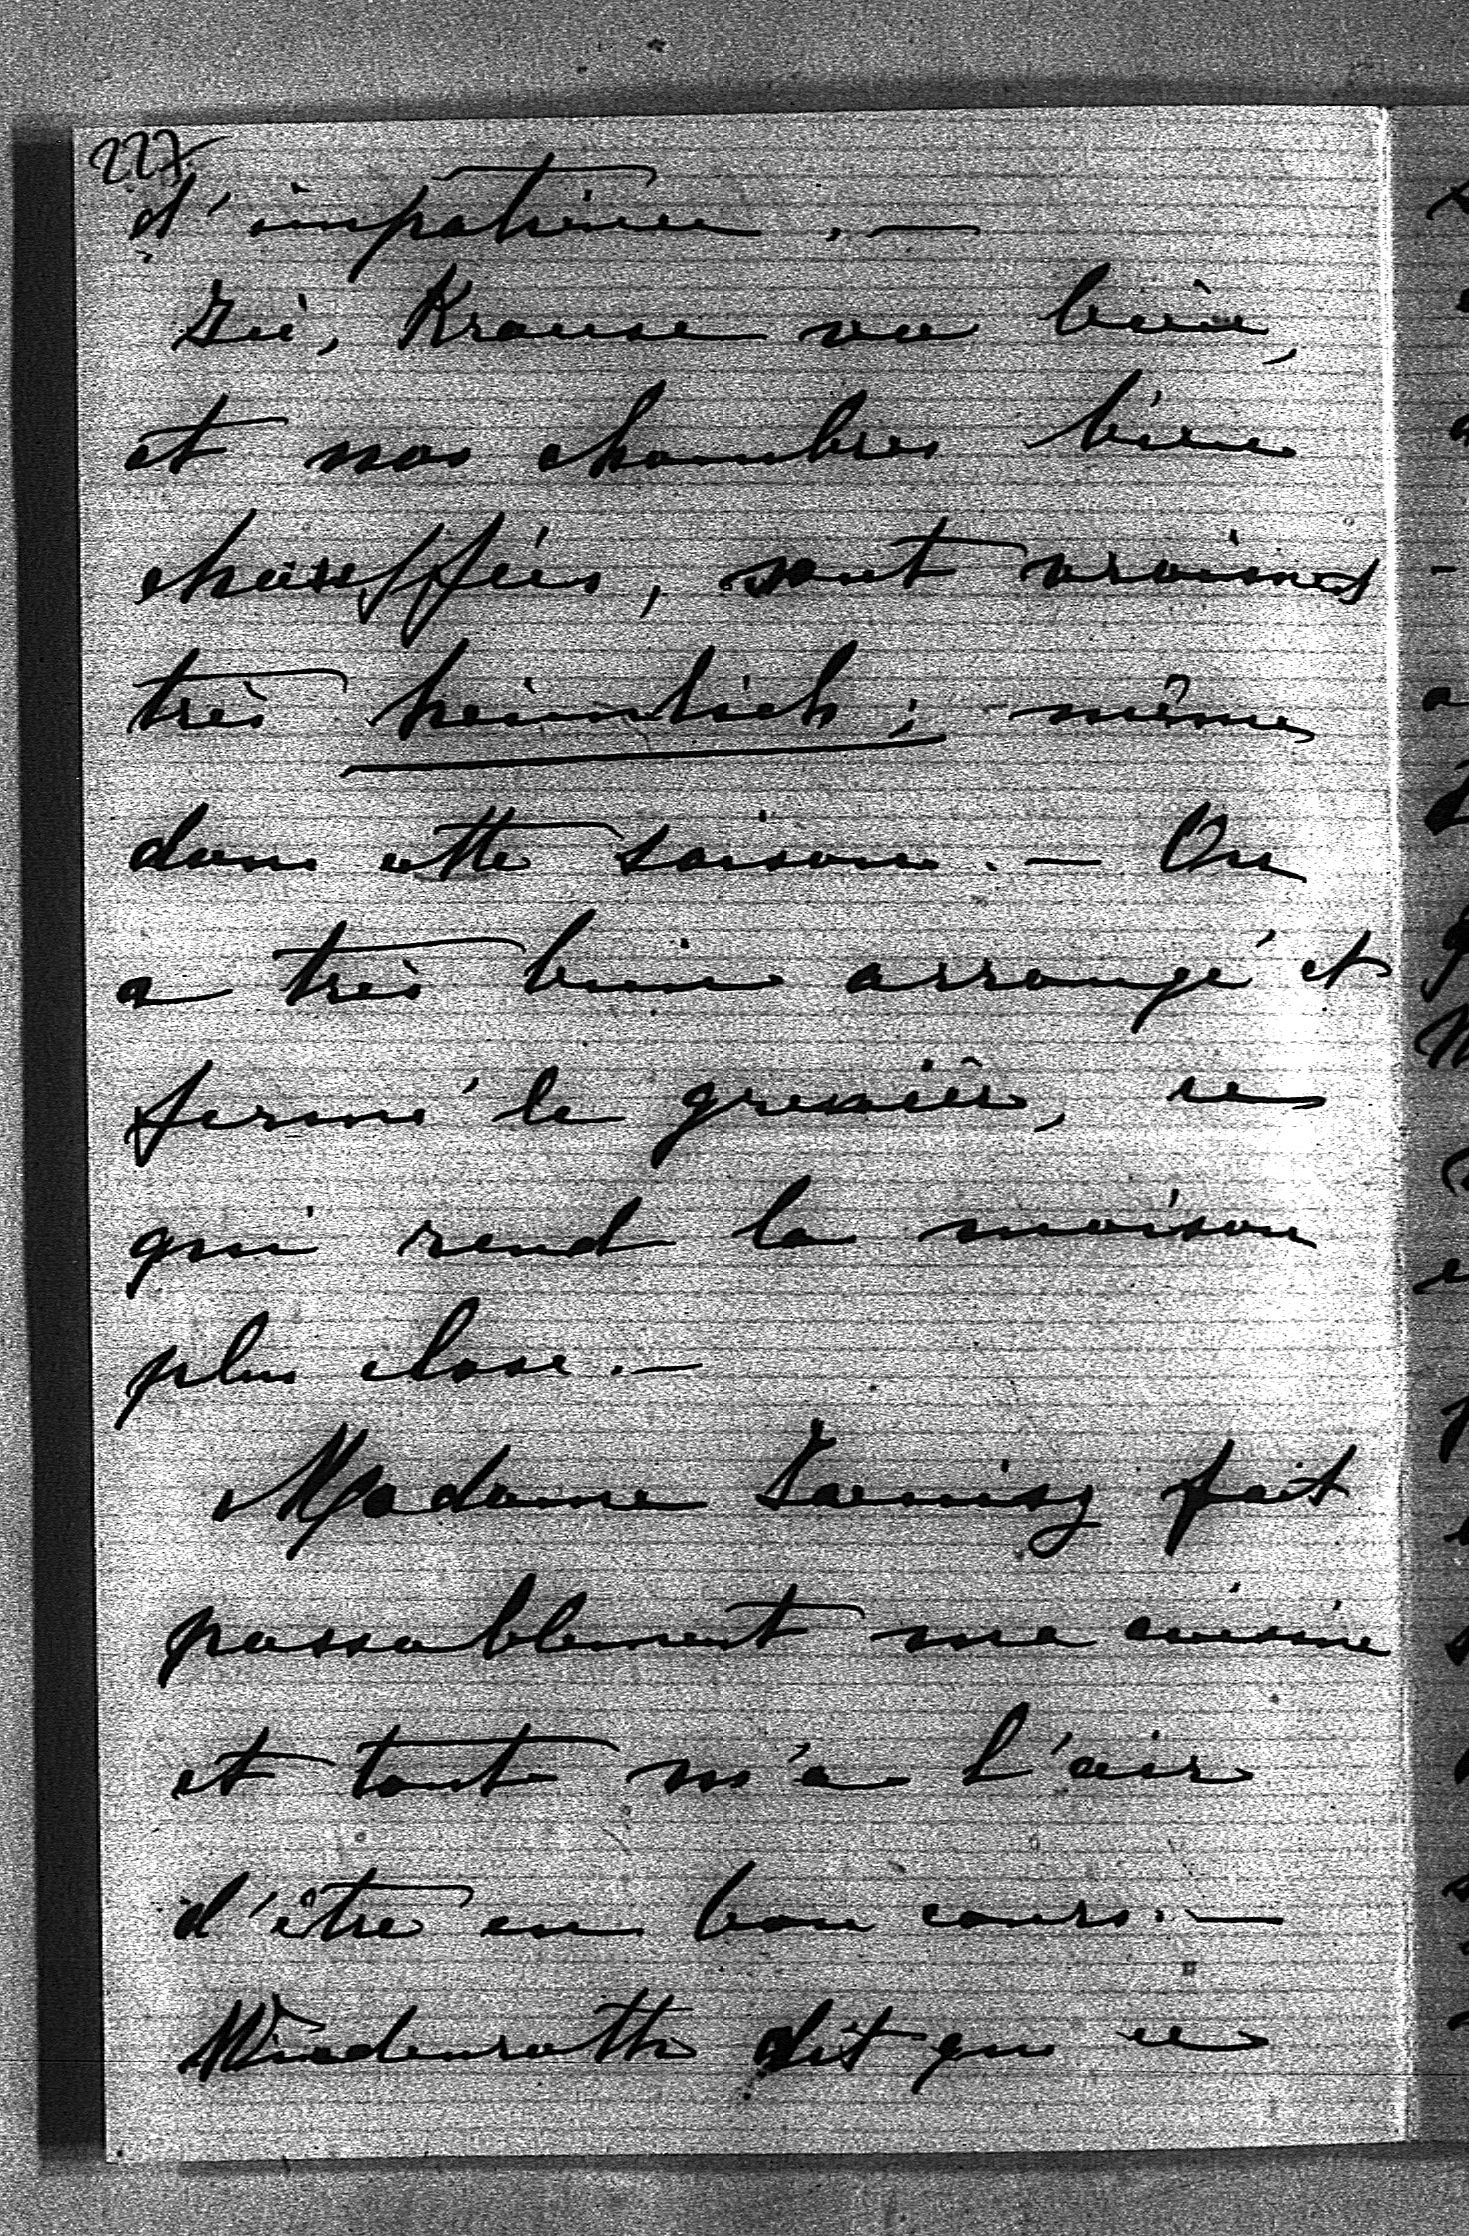 227
d'impatience. —
Ici, Krause va bien,
et nos chambres bien
chauffées, sont vraiment
très heimlich; même
dans cette saison. — On
a très bien arrangé et
fermé le grenier, ce
qui rend la maison
plus close. —
Madame fait
passablement ma cuisine
et tout m'a l'air
d'être en bon cours. —
Wiedenroth dit que ce